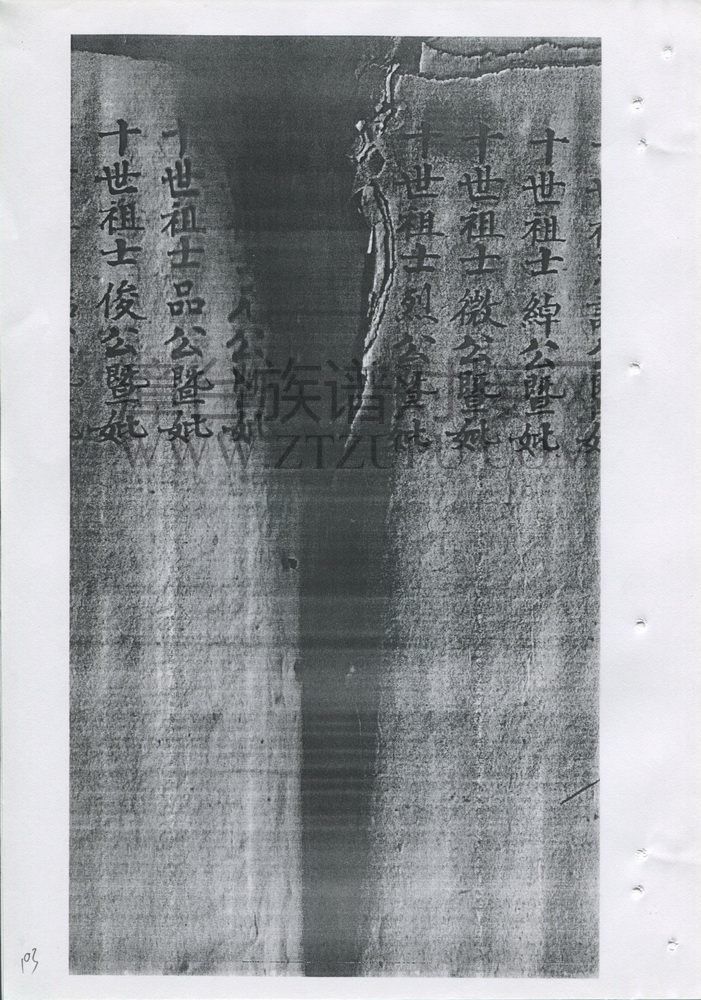 十世祖士綽公暨妣
十世祖士徵公暨妣
十世祖士烈公暨妣
公暨妣
十世祖士品公暨妣
十世祖士俊公暨妣
族谱
WWW.ZTZUPU.COM
103